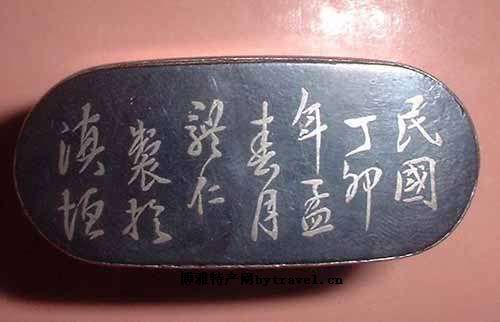 民國
丁卯
年孟
春月
體仁
製於
滇垣
博雅特产网bytravel.cn